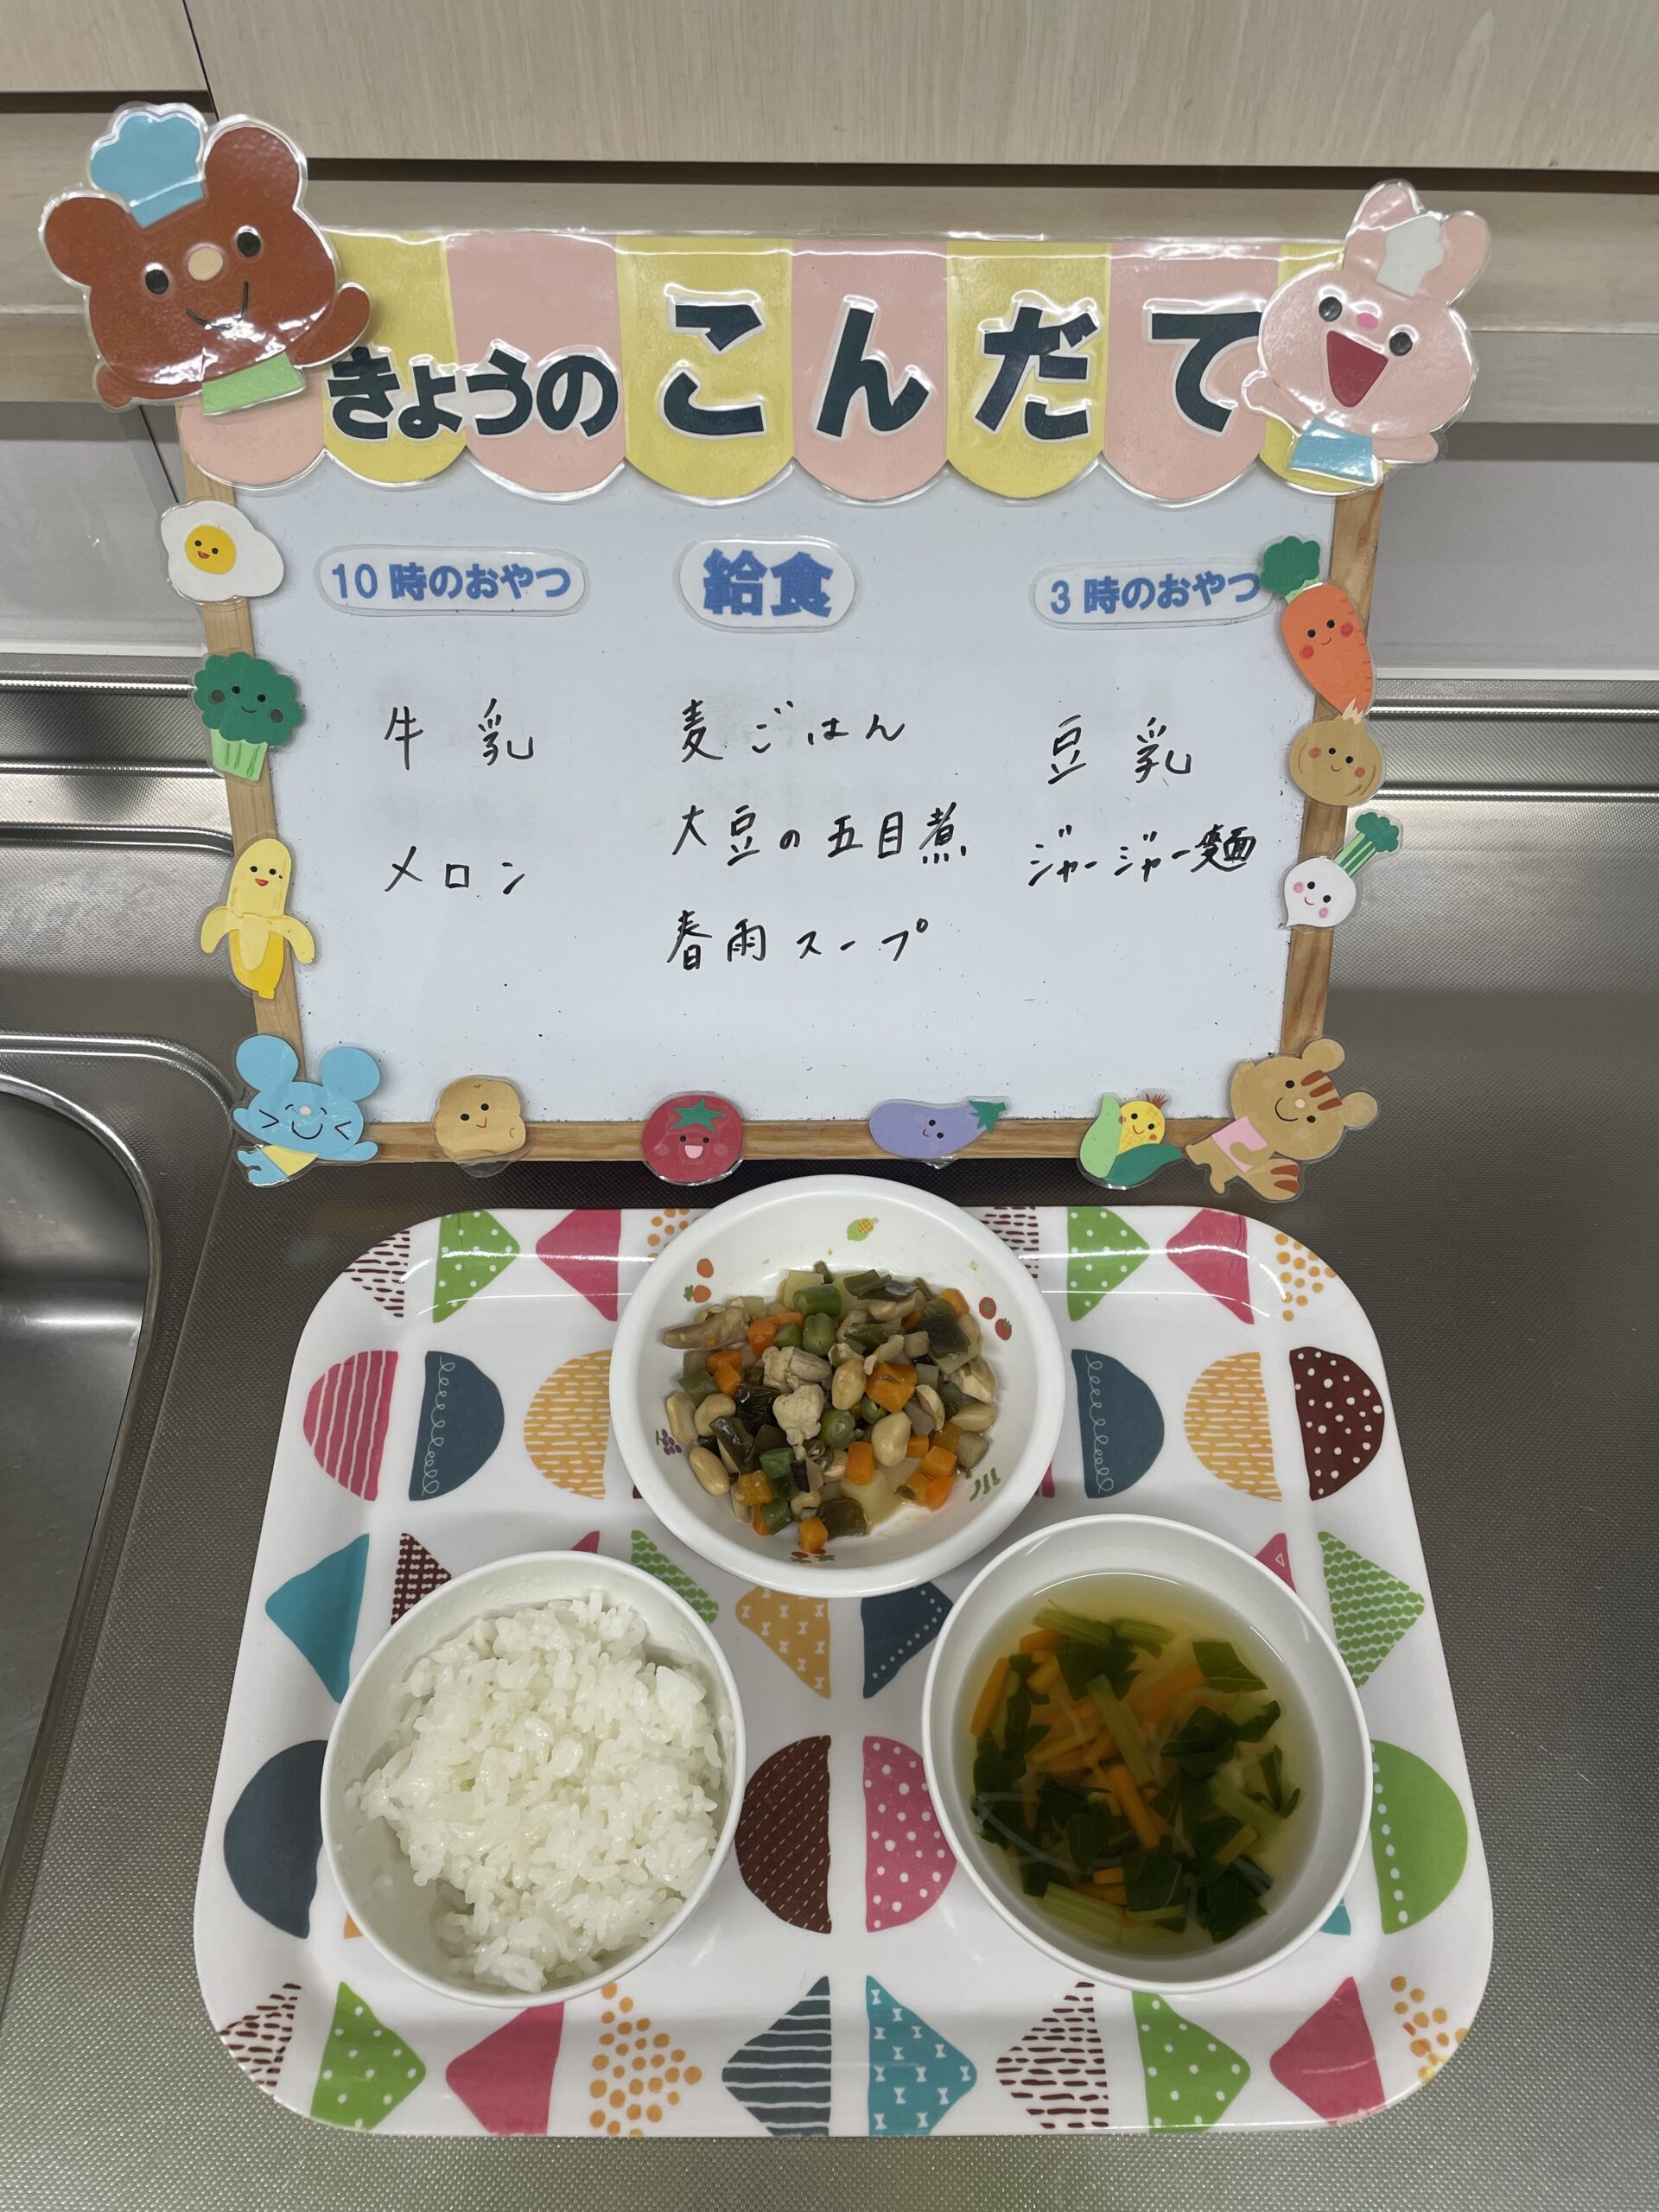 きょうのこんだて
10時のおやつ
牛乳
メロン
給食
麦ごはん
大豆の五目煮
春雨スープ
3時のおやつ
豆乳
ジャージャー麺